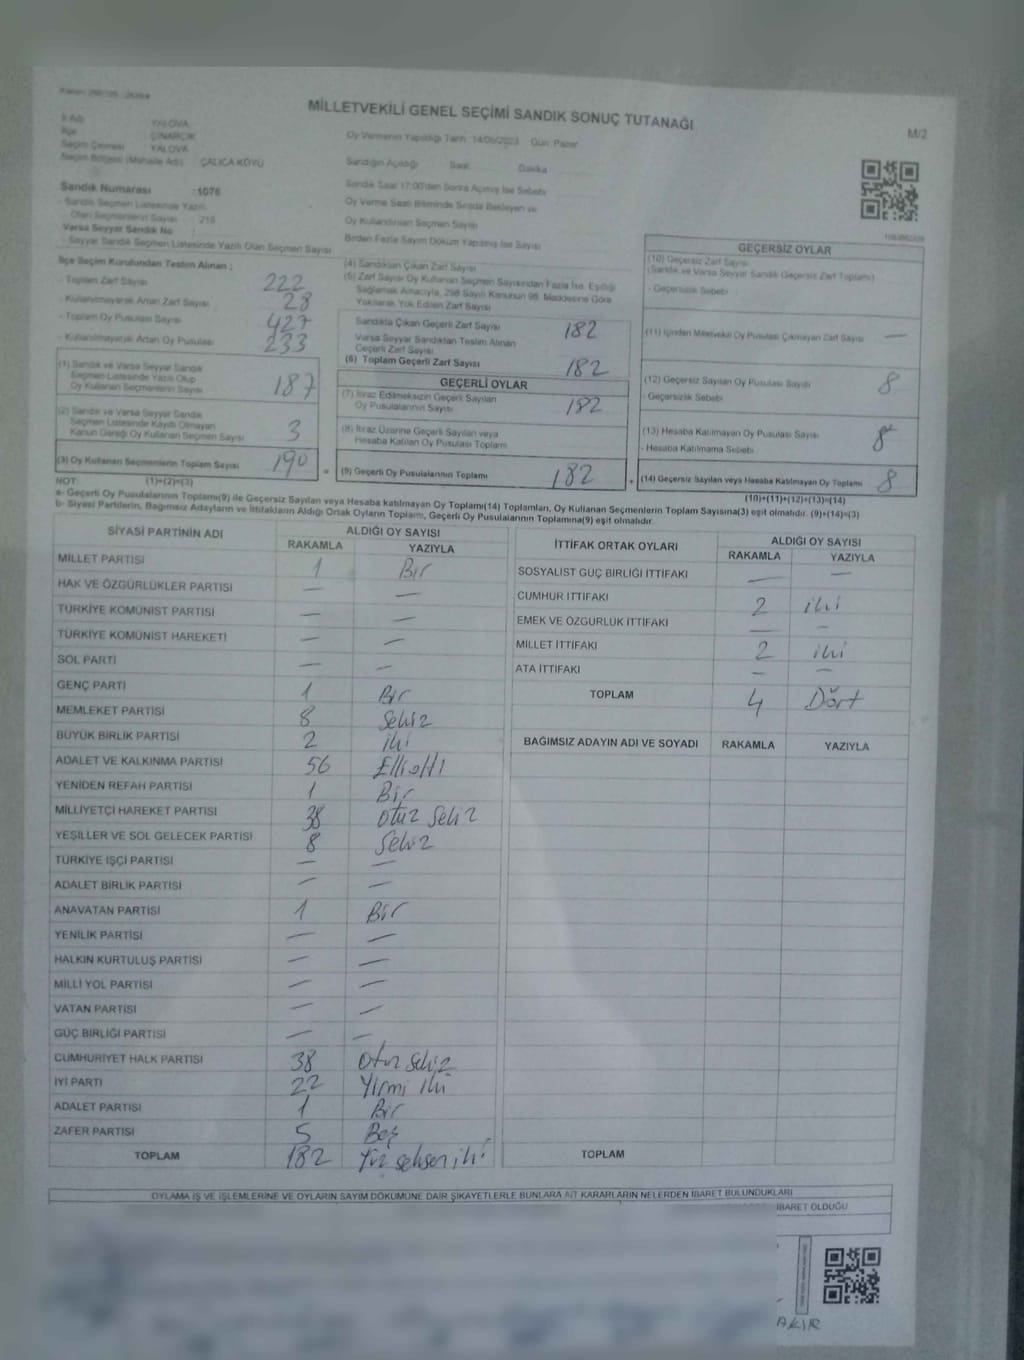 MİLLETVEKİLİ GENEL SEÇİMİ SANDIK SONUÇ TUTANAĞI
M/2
İl Adı YALOVA
İlçe ÇINARCIK
Seçim Çevresi YALOVA
Seçim Bölgesi (Mahalle Adı) ÇALICA KÖYÜ
Sandık Numarası :1076
- Sandık Seçmen Listesinde Yazılı
Olan Seçmenlerin Sayısı 218
Varsa Seyyar Sandık No
- Seyyar Sandık Seçmen Listesinde Yazılı Olan Seçmen Sayısı
Oy Vermenin Yapıldığı Tarih :14/05/2023 Gün: Pazar
Sandığın Açıldığı Saat Dakika
Sandık Saat 17:00'den Sonra Açılmış İse Sebebi
Oy Verme Saati Bitiminde Sırada Bekleyen ve
Oy Kullandırılan Seçmen Sayısı
Birden Fazla Sayım Döküm Yapılmış İse Sayısı
İlçe Seçim Kurulundan Teslim Alınan ;
- Toplam Zarf Sayısı 222
- Kullanılmayarak Artan Zarf Sayısı 28
- Toplam Oy Pusulası Sayısı 427
- Kullanılmayarak Artan Oy Pusulası 233
(1) Sandık ve Varsa Seyyar Sandık
Seçmen Listesinde Yazılı Olup
Oy Kullanan Seçmenlerin Sayısı 187
(2) Sandık ve Varsa Seyyar Sandık
Seçmen Listesinde Kayıtlı Olmayan
Kanun Gereği Oy Kullanan Seçmen Sayısı 3
(3) Oy Kullanan Seçmenlerin Toplam Sayısı 190
(4) Sandıktan Çıkan Zarf Sayısı
(5) Zarf Sayısı Oy Kullanan Seçmen Sayısından Fazla İse, Eşitliği
Sağlamak Amacıyla, 298 Sayılı Kanunun 98. Maddesine Göre
Yakılarak Yok Edilen Zarf Sayısı
Sandıkta Çıkan Geçerli Zarf Sayısı 182
Varsa Seyyar Sandıktan Teslim Alınan
Geçerli Zarf Sayısı
(6) Toplam Geçerli Zarf Sayısı 182
GEÇERLİ OYLAR
(7) İtiraz Edilmeksizin Geçerli Sayılan
Oy Pusulalarının Sayısı 182
(8) İtiraz Üzerine Geçerli Sayılan veya
Hesaba Katılan Oy Pusulası Toplamı
= (9) Geçerli Oy Pusulalarının Toplamı 182
GEÇERSİZ OYLAR
(10) Geçersiz Zarf Sayısı
(Sandık ve Varsa Seyyar Sandık Geçersiz Zarf Toplamı)
- Geçersizlik Sebebi
(11) İçinden Milletvekili Oy Pusulası Çıkmayan Zarf Sayısı —
(12) Geçersiz Sayılan Oy Pusulası Sayısı 8
- Geçersizlik Sebebi
(13) Hesaba Katılmayan Oy Pusulası Sayısı 8
- Hesaba Katılmama Sebebi
+ (14) Geçersiz Sayılan veya Hesaba Katılmayan Oy Toplamı 8
NOT: (1)+(2)=(3)
(10)+(11)+(12)+(13)=(14)
a- Geçerli Oy Pusulalarının Toplamı(9) ile Geçersiz Sayılan veya Hesaba katılmayan Oy Toplamı(14) Toplamları, Oy Kullanan Seçmenlerin Toplam Sayısına(3) eşit olmalıdır. (9)+(14)=(3)
b- Siyasi Partilerin, Bağımsız Adayların ve İttifakların Aldığı Ortak Oyların Toplamı, Geçerli Oy Pusulalarının Toplamına(9) eşit olmalıdır.
SİYASİ PARTİNİN ADI ALDIĞI OY SAYISI
RAKAMLA YAZIYLA
MİLLET PARTİSİ 1 Bir
HAK VE ÖZGÜRLÜKLER PARTİSİ — —
TÜRKİYE KOMÜNİST PARTİSİ — —
TÜRKİYE KOMÜNİST HAREKETİ — —
SOL PARTİ — —
GENÇ PARTİ 1 Bir
MEMLEKET PARTİSİ 8 Sekiz
BÜYÜK BİRLİK PARTİSİ 2 iki
ADALET VE KALKINMA PARTİSİ 56 Elli altı
YENİDEN REFAH PARTİSİ 1 Bir
MİLLİYETÇİ HAREKET PARTİSİ 38 otuz sekiz
YEŞİLLER VE SOL GELECEK PARTİSİ 8 Sekiz
TÜRKİYE İŞÇİ PARTİSİ — —
ADALET BİRLİK PARTİSİ — —
ANAVATAN PARTİSİ 1 Bir
YENİLİK PARTİSİ — —
HALKIN KURTULUŞ PARTİSİ — —
MİLLİ YOL PARTİSİ — —
VATAN PARTİSİ — —
GÜÇ BİRLİĞİ PARTİSİ — —
CUMHURİYET HALK PARTİSİ 38 otuz sekiz
İYİ PARTİ 22 Yirmi iki
ADALET PARTİSİ 1 Bir
ZAFER PARTİSİ 5 Beş
TOPLAM 182 Yüz seksen iki
İTTİFAK ORTAK OYLARI ALDIĞI OY SAYISI
RAKAMLA YAZIYLA
SOSYALİST GÜÇ BİRLİĞİ İTTİFAKI — —
CUMHUR İTTİFAKI 2 iki
EMEK VE ÖZGÜRLÜK İTTİFAKI — —
MİLLET İTTİFAKI 2 iki
ATA İTTİFAKI — —
TOPLAM 4 Dört
BAĞIMSIZ ADAYIN ADI VE SOYADI RAKAMLA YAZIYLA
TOPLAM
OYLAMA İŞ VE İŞLEMLERİNE VE OYLARIN SAYIM DÖKÜMÜNE DAİR ŞİKAYETLERLE BUNLARA AİT KARARLARIN NELERDEN İBARET BULUNDUKLARI
İBARET OLDUĞU